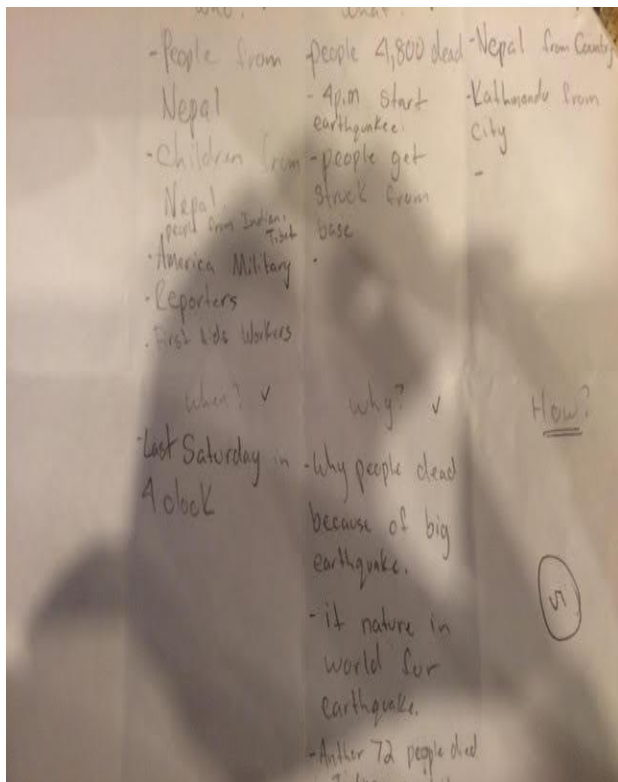 who?
- People from
Nepal
- Children from
Nepal.
people from Indian,
Tibet
- America Military
- Reporters
- First Aids Workers
what?
people 4,800 dead
- 4p.m start
earthqunkee.
- people get
struck from
base.
-
- Nepal from County
- Kathmandu from
city
-
when? ✓
- Last Saturday in
4 clock
why? ✓
- Why people dead
because of big
earthquake.
- it nature in
world for
earthquake.
- Anther 72 people died
How?
5